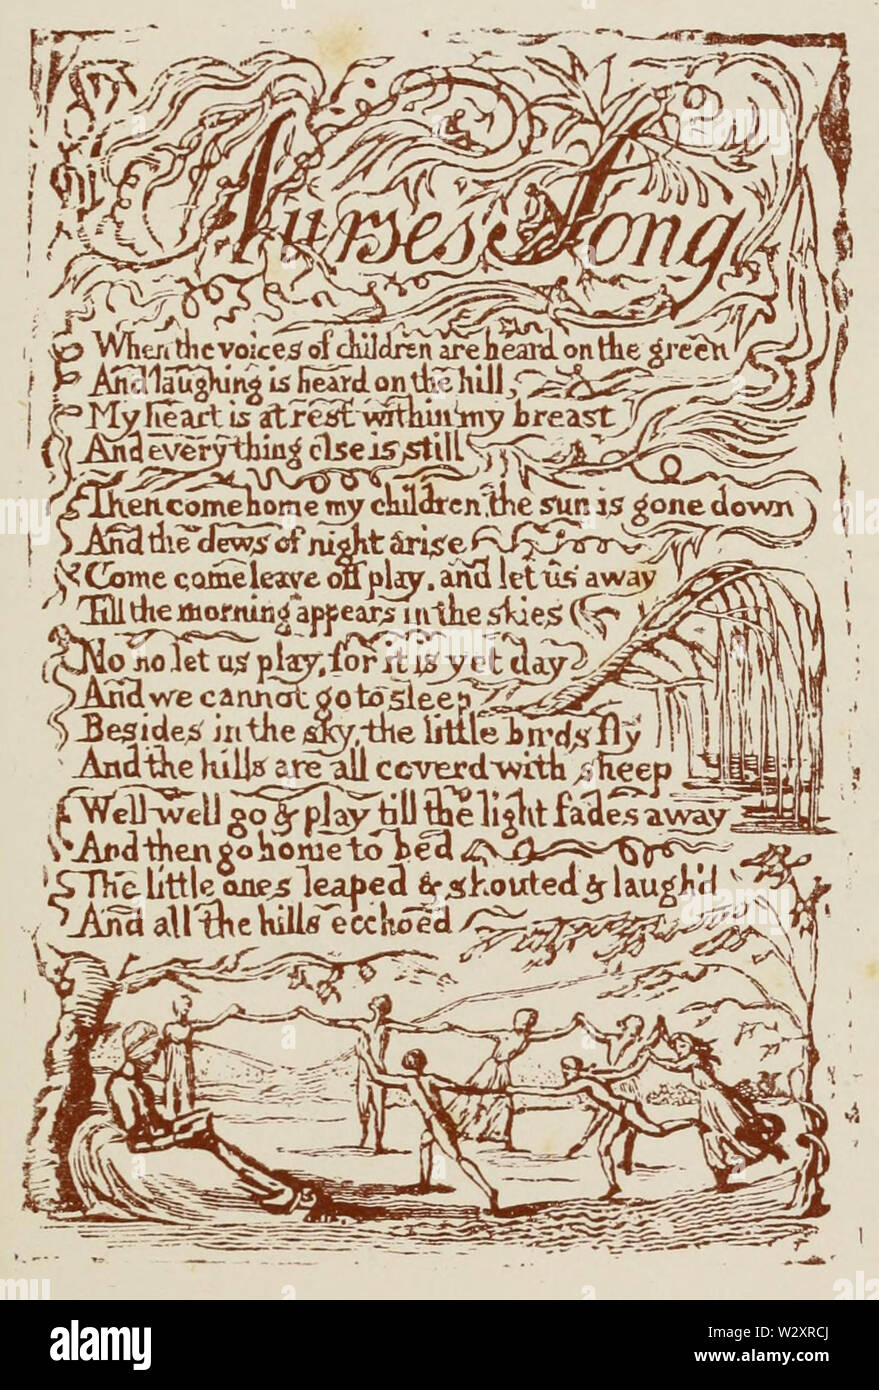 Nurses Song
When the voices of children are heard on the green
And laughing is heard on the hill,
My heart is at rest within my breast
And every thing else is still
Then come home my children, the sun is gone down
And the dews of night arise
Come come leave off play, and let us away
Till the morning appears in the skies
No no let us play, for it is yet day
And we cannot go to sleep
Besides in the sky, the little birds fly
And the hills are all coverd with sheep
Well well go & play till the light fades away
And then go home to bed
The little ones leaped & shouted & laugh'd
And all the hills ecchoed
alamy
Image ID: W2XRCJ
www.alamy.com